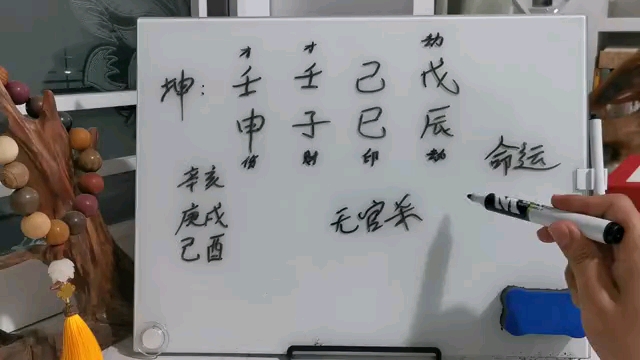 才 才 劫
坤: 壬 壬 己 戊
申 子 巳 辰
伤 财 印 劫
命运
辛亥
庚戌
己酉
无官杀